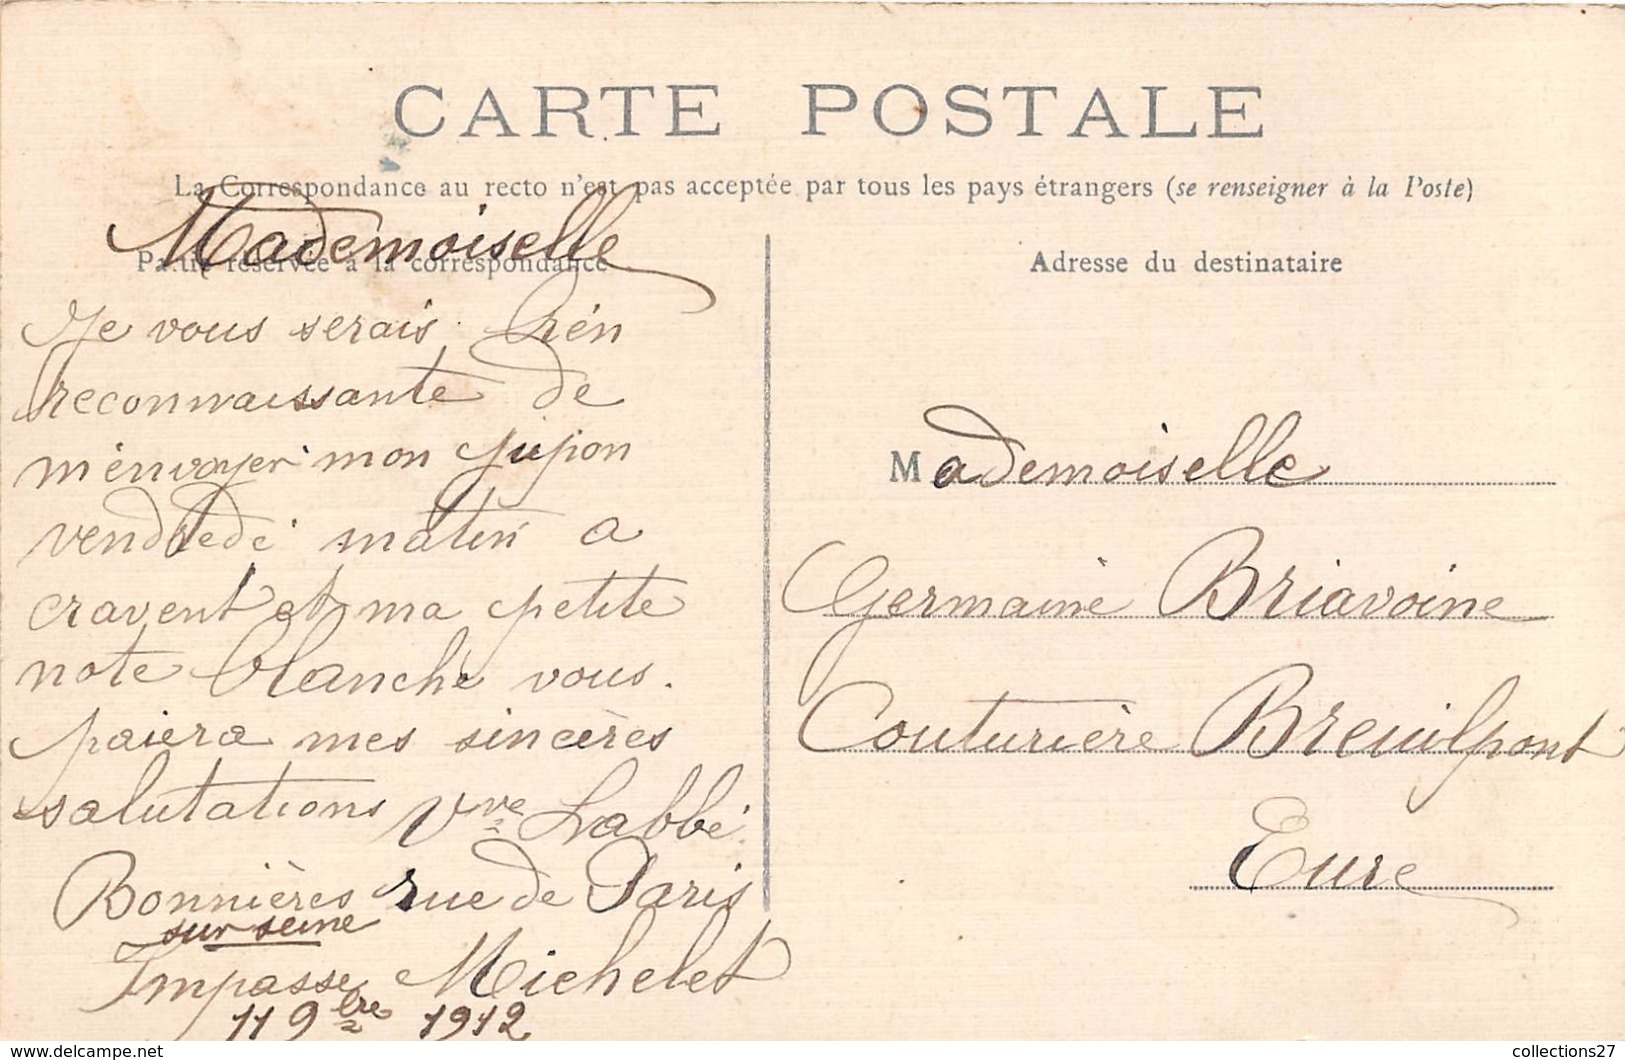 CARTE POSTALE
La Correspondance au recto n'est pas acceptée par tous les pays étrangers (se renseigner à la Poste)
Partie réservée à la correspondance
Adresse du destinataire
Mademoiselle
Je vous serais bién
reconnaissante de
m'envoyer mon jupon
vendredi matin a
cravent et ma petite
note blanche vous
paiera mes sincères
salutations Vve Labbé
Bonnières rue de Paris
sur seine
Impasse Michelet
11 9bre 1912
Mademoiselle
Germaine Briavoine
Couturière Breuilpont
Eure
collections27